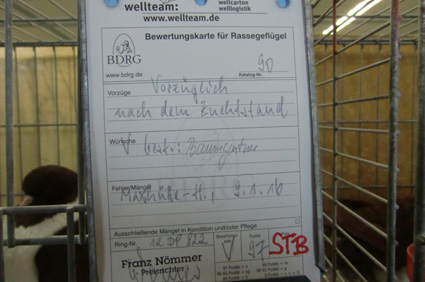 wellteam:
wellcarton
welllogistik
www.wellteam.de
Bewertungskarte für Rassegeflügel
BDRG
www.bdrg.de
Katalog-Nr. 90
Vorzüge
Vorzüglich
nach dem Zuchtstand
Wünsche
V bestr.: Baumgartner
Fehler/Mängel
9.1.16
Ausschließende Mängel in Kondition und/oder Pflege
Ring-Nr. 12 822
Bewertung V
Punkte 97 STB
Franz Nömmer
Preisrichter